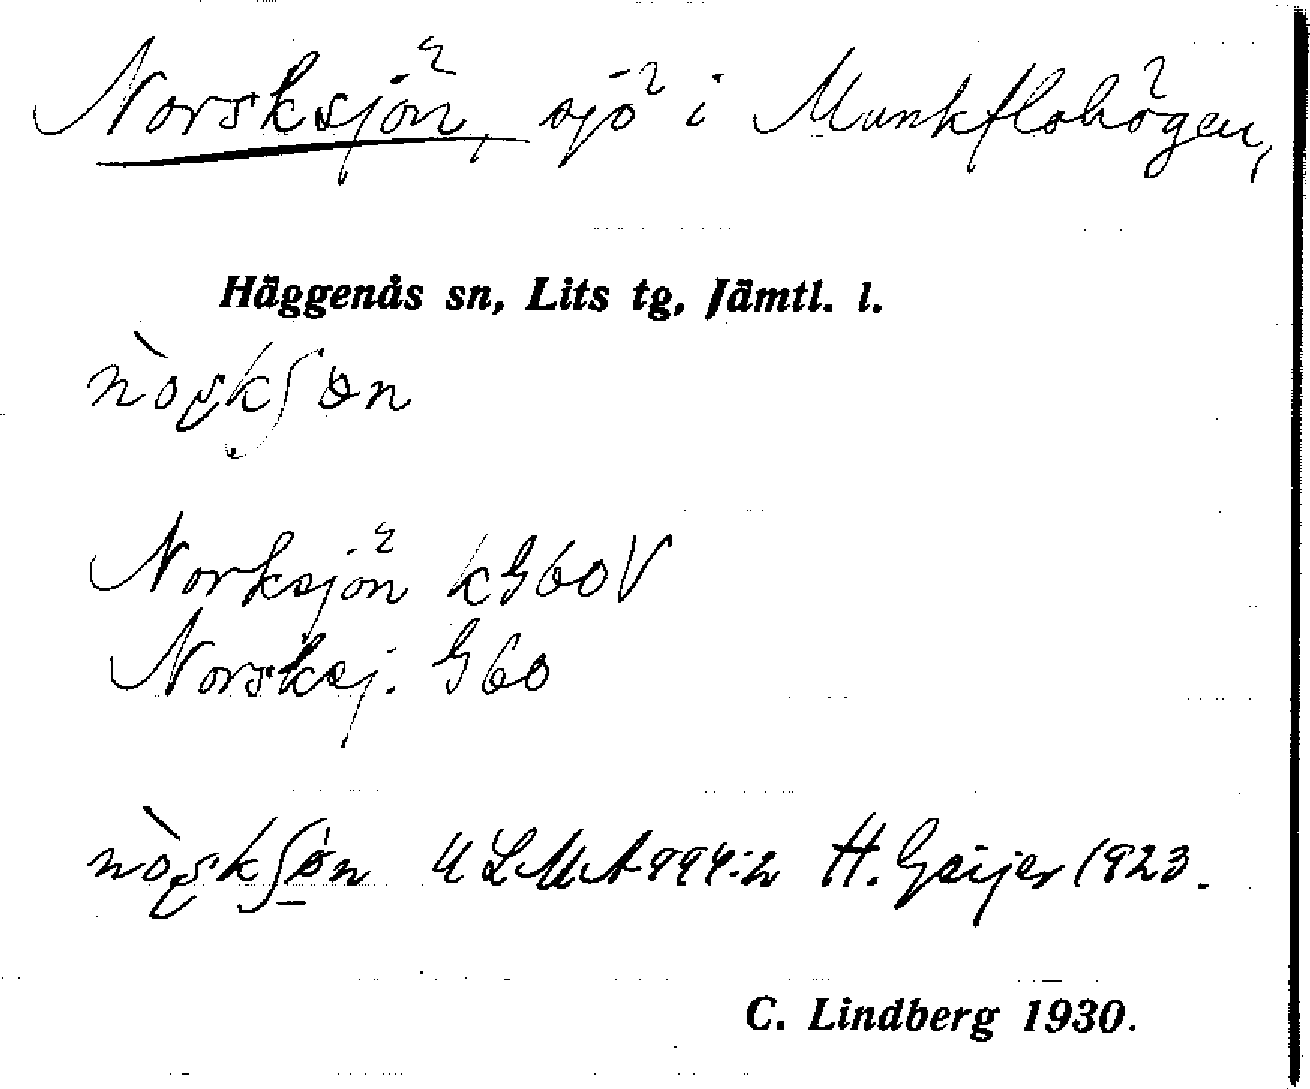 Norsksjön, sjö i Munkflohögen,
Häggenås sn, Lits tg, Jämtl. l.
Norksjön k G60V
Norsksj. G60
ULMA 994:2 H. Geijer 1923.
C. Lindberg 1930.